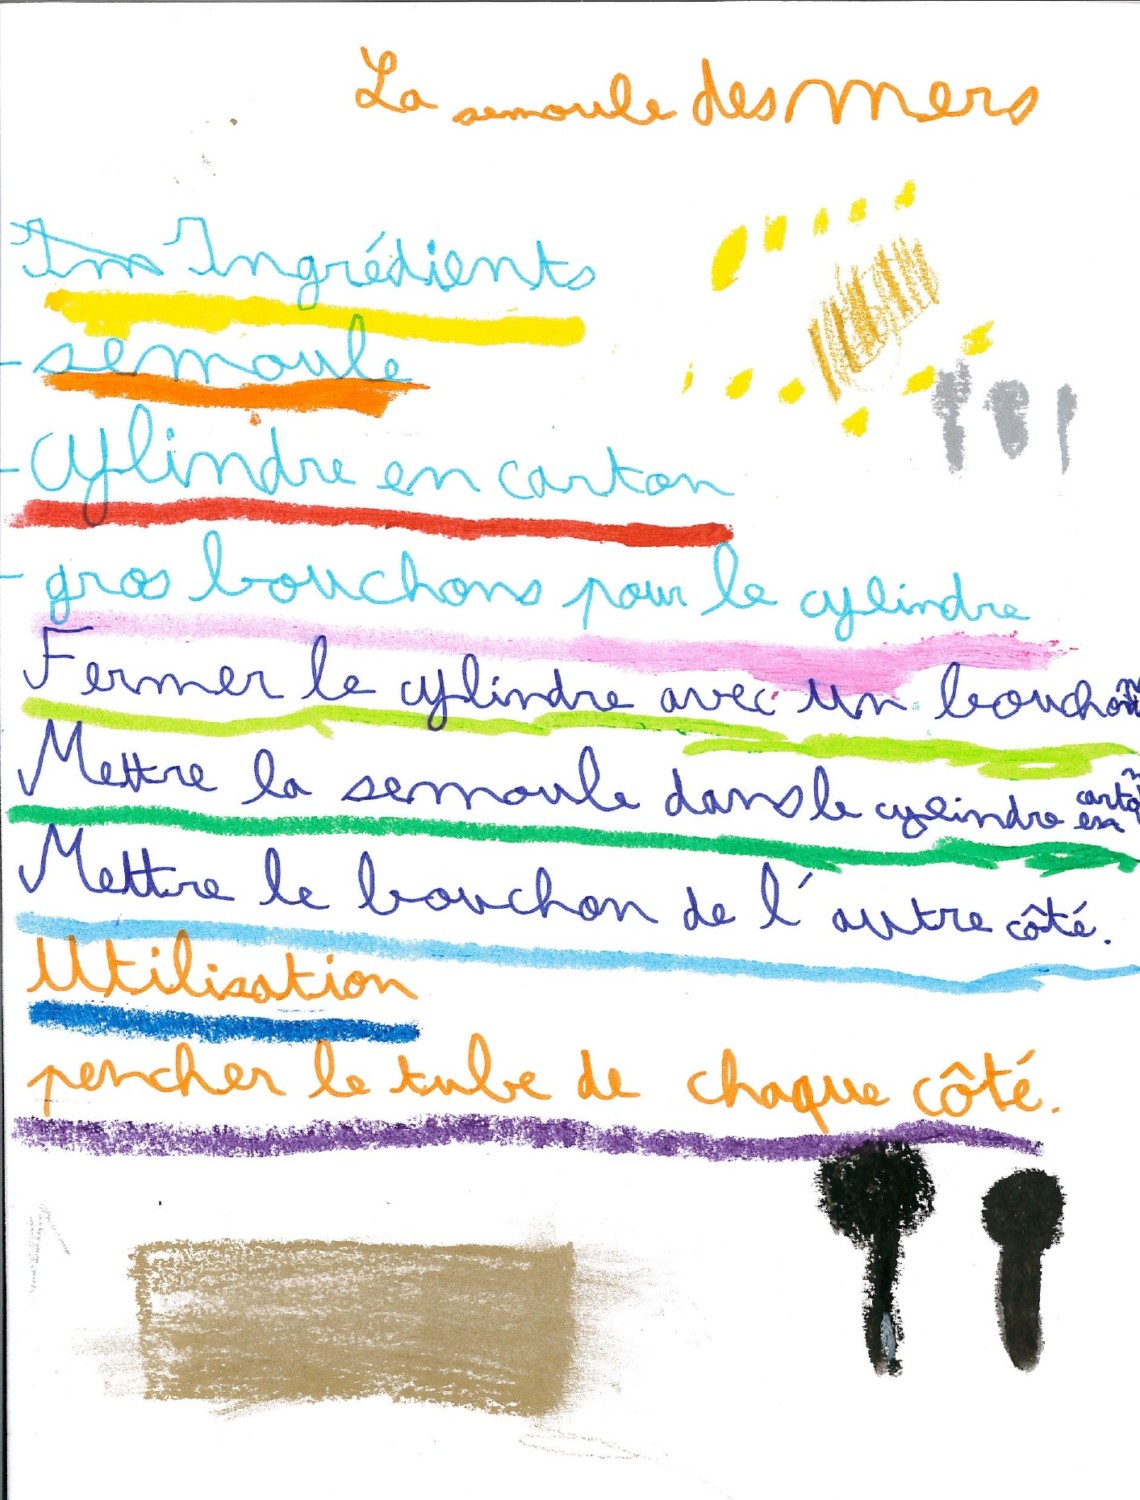 La semoule des mers
Im Ingrédients
- semoule
- cylindre en carton
- gros bouchons pour le cylindre
Fermer le cylindre avec un bouchon
Mettre la semoule dans le cylindre en carton
Mettre le bouchon de l'autre côté.
Utilisation
pencher le tube de chaque côté.